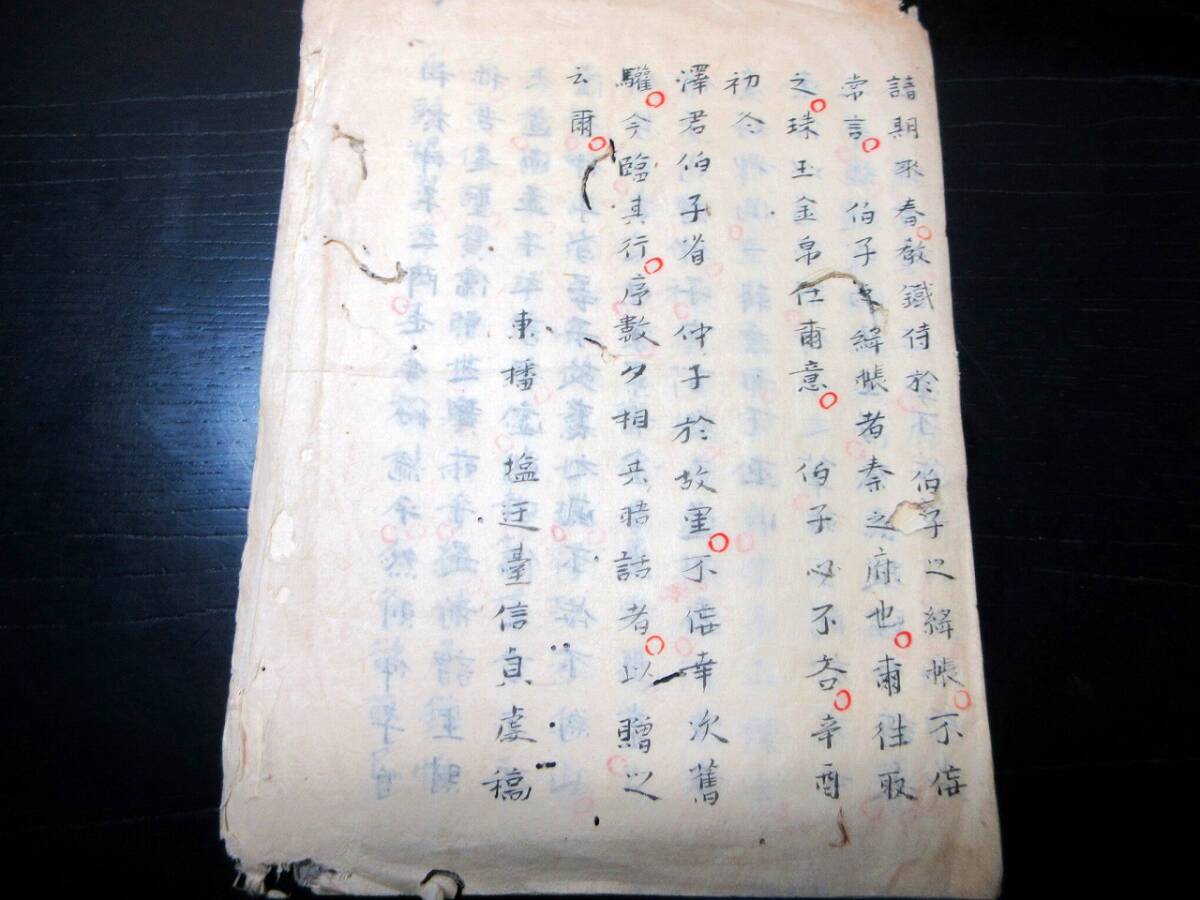 請期來春教鐵侍於 伯子之絳帳不佞
常言 伯子之絳帳者秦之府也爾往取
之珠玉金帛任爾意 伯子必不吝辛酉
初冬
澤君伯子省 仲子於故里不佞幸次舊
驩今臨其行序數夕相共晤話者以贈之
云爾
東播 塩迂臺信貞虔稿